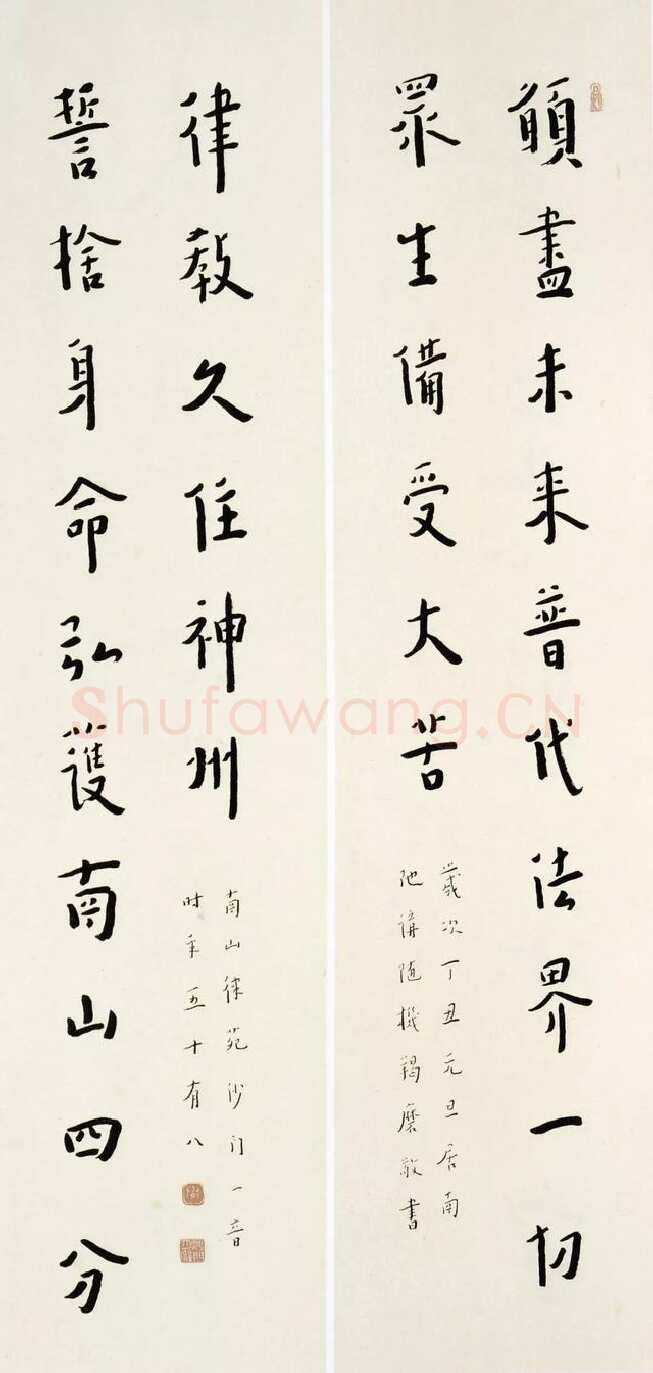 願盡未来普代法界一切
眾生備受大苦
歲次丁丑元旦居南
陀講随機羯磨敬書
誓捨身命弘護南山四分
律教久住神州
南山律苑沙门一音
时年五十有八
Shufawang.CN